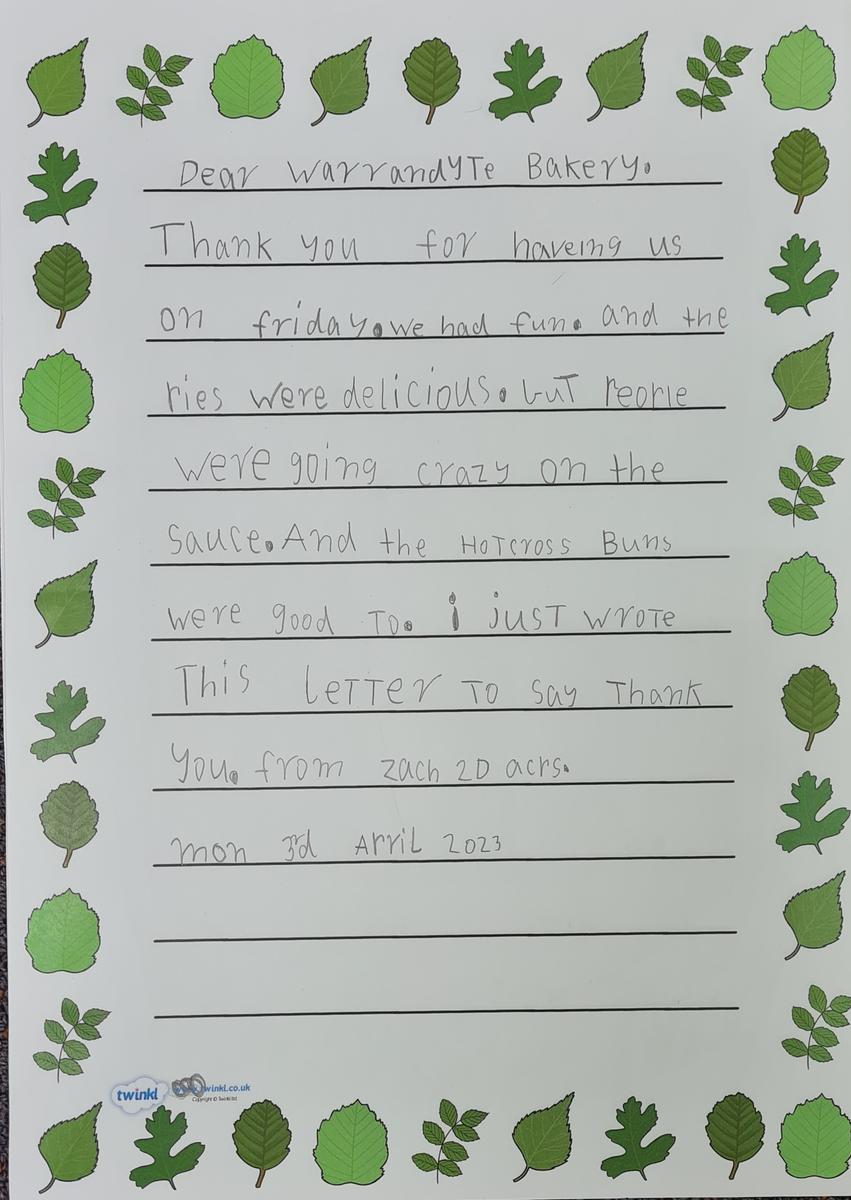 Dear WarrandyTe Bakery.
Thank you for haveing us
on friday. we had fun. and the
pies were delicious. buT people
were going crazy on the
Sauce. And the HoTcross Buns
were good To. i jusT wroTe
This leTTer To say Thank
you. from zach 2D acps.
mon 3rd April 2023
twinkl
winkl.co.uk
Copyright © Twinkl Ltd